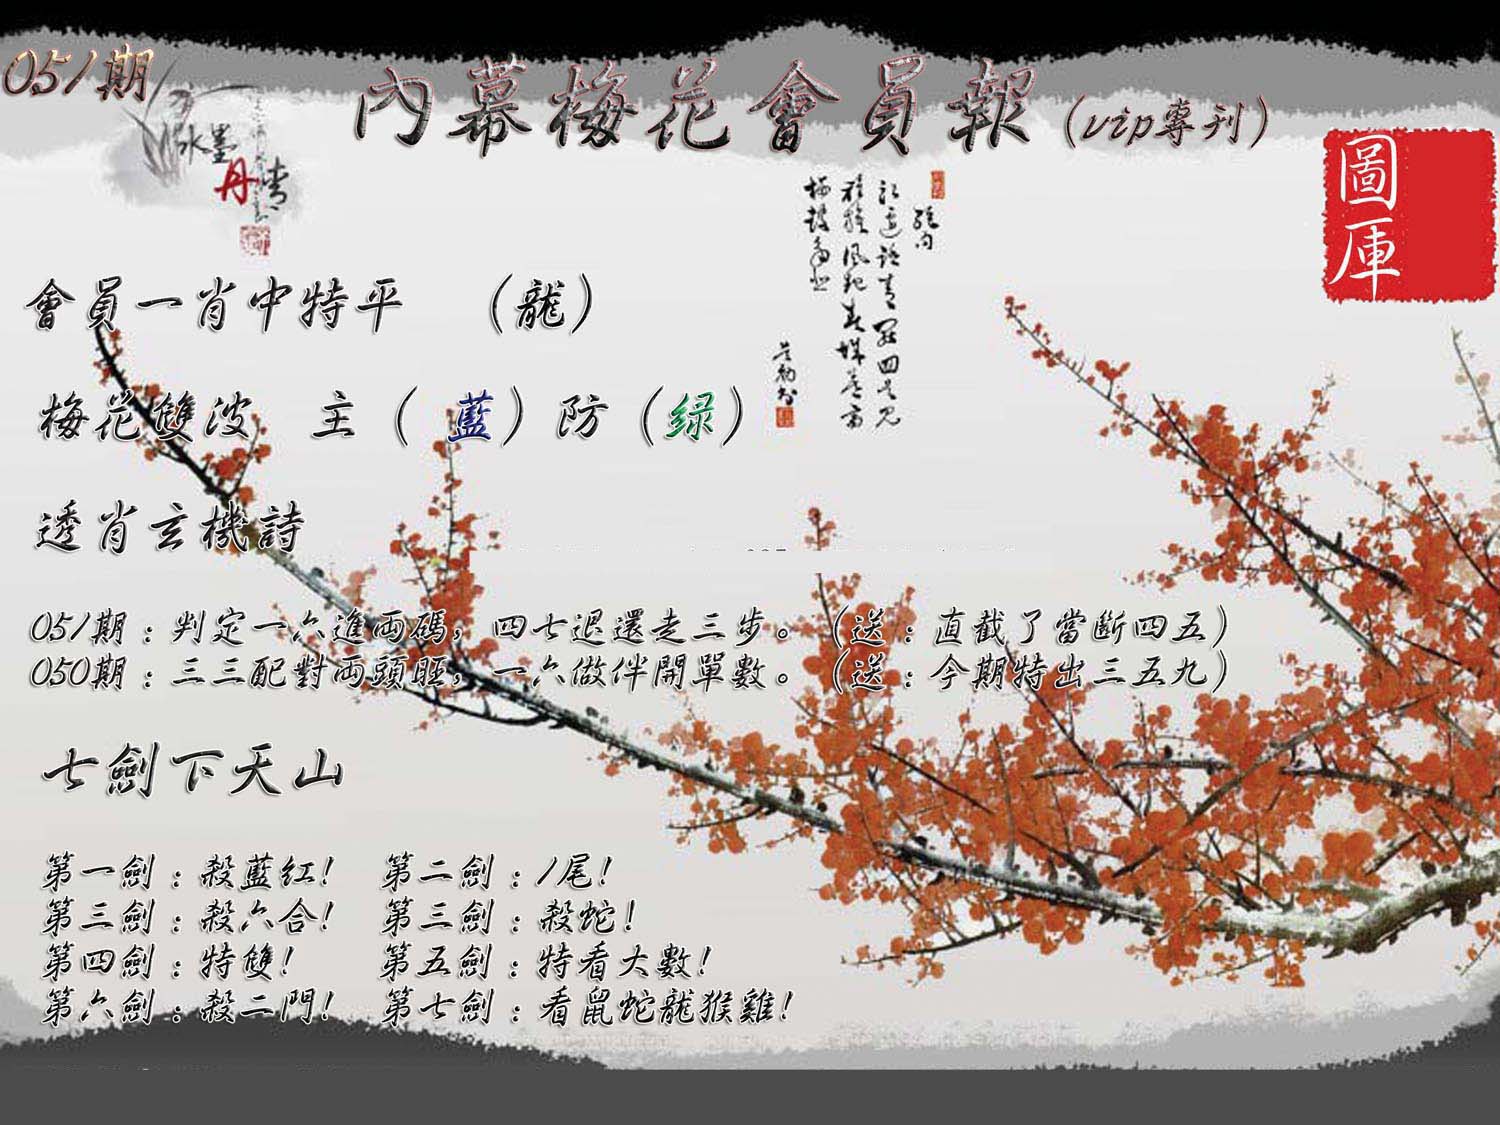 051期
內幕梅花會員報（vip專刊）
水墨
丹青
圖庫
會員一肖中特平 （龍）
梅花雙波 主（ 藍）防（绿）
透肖玄機詩
051期：判定一六進両碼，四七退還走三步。（送：直截了當斷四五）
050期：三三配對両頭旺，一六做伴開單數。（送：今期特出三五九）
七劍下天山
第一劍：殺藍红! 第二劍：1尾!
第三劍：殺六合! 第三劍：殺蛇!
第四劍：特雙! 第五劍：特看大數!
第六劍：殺二門! 第七劍：看鼠蛇龍猴雞!